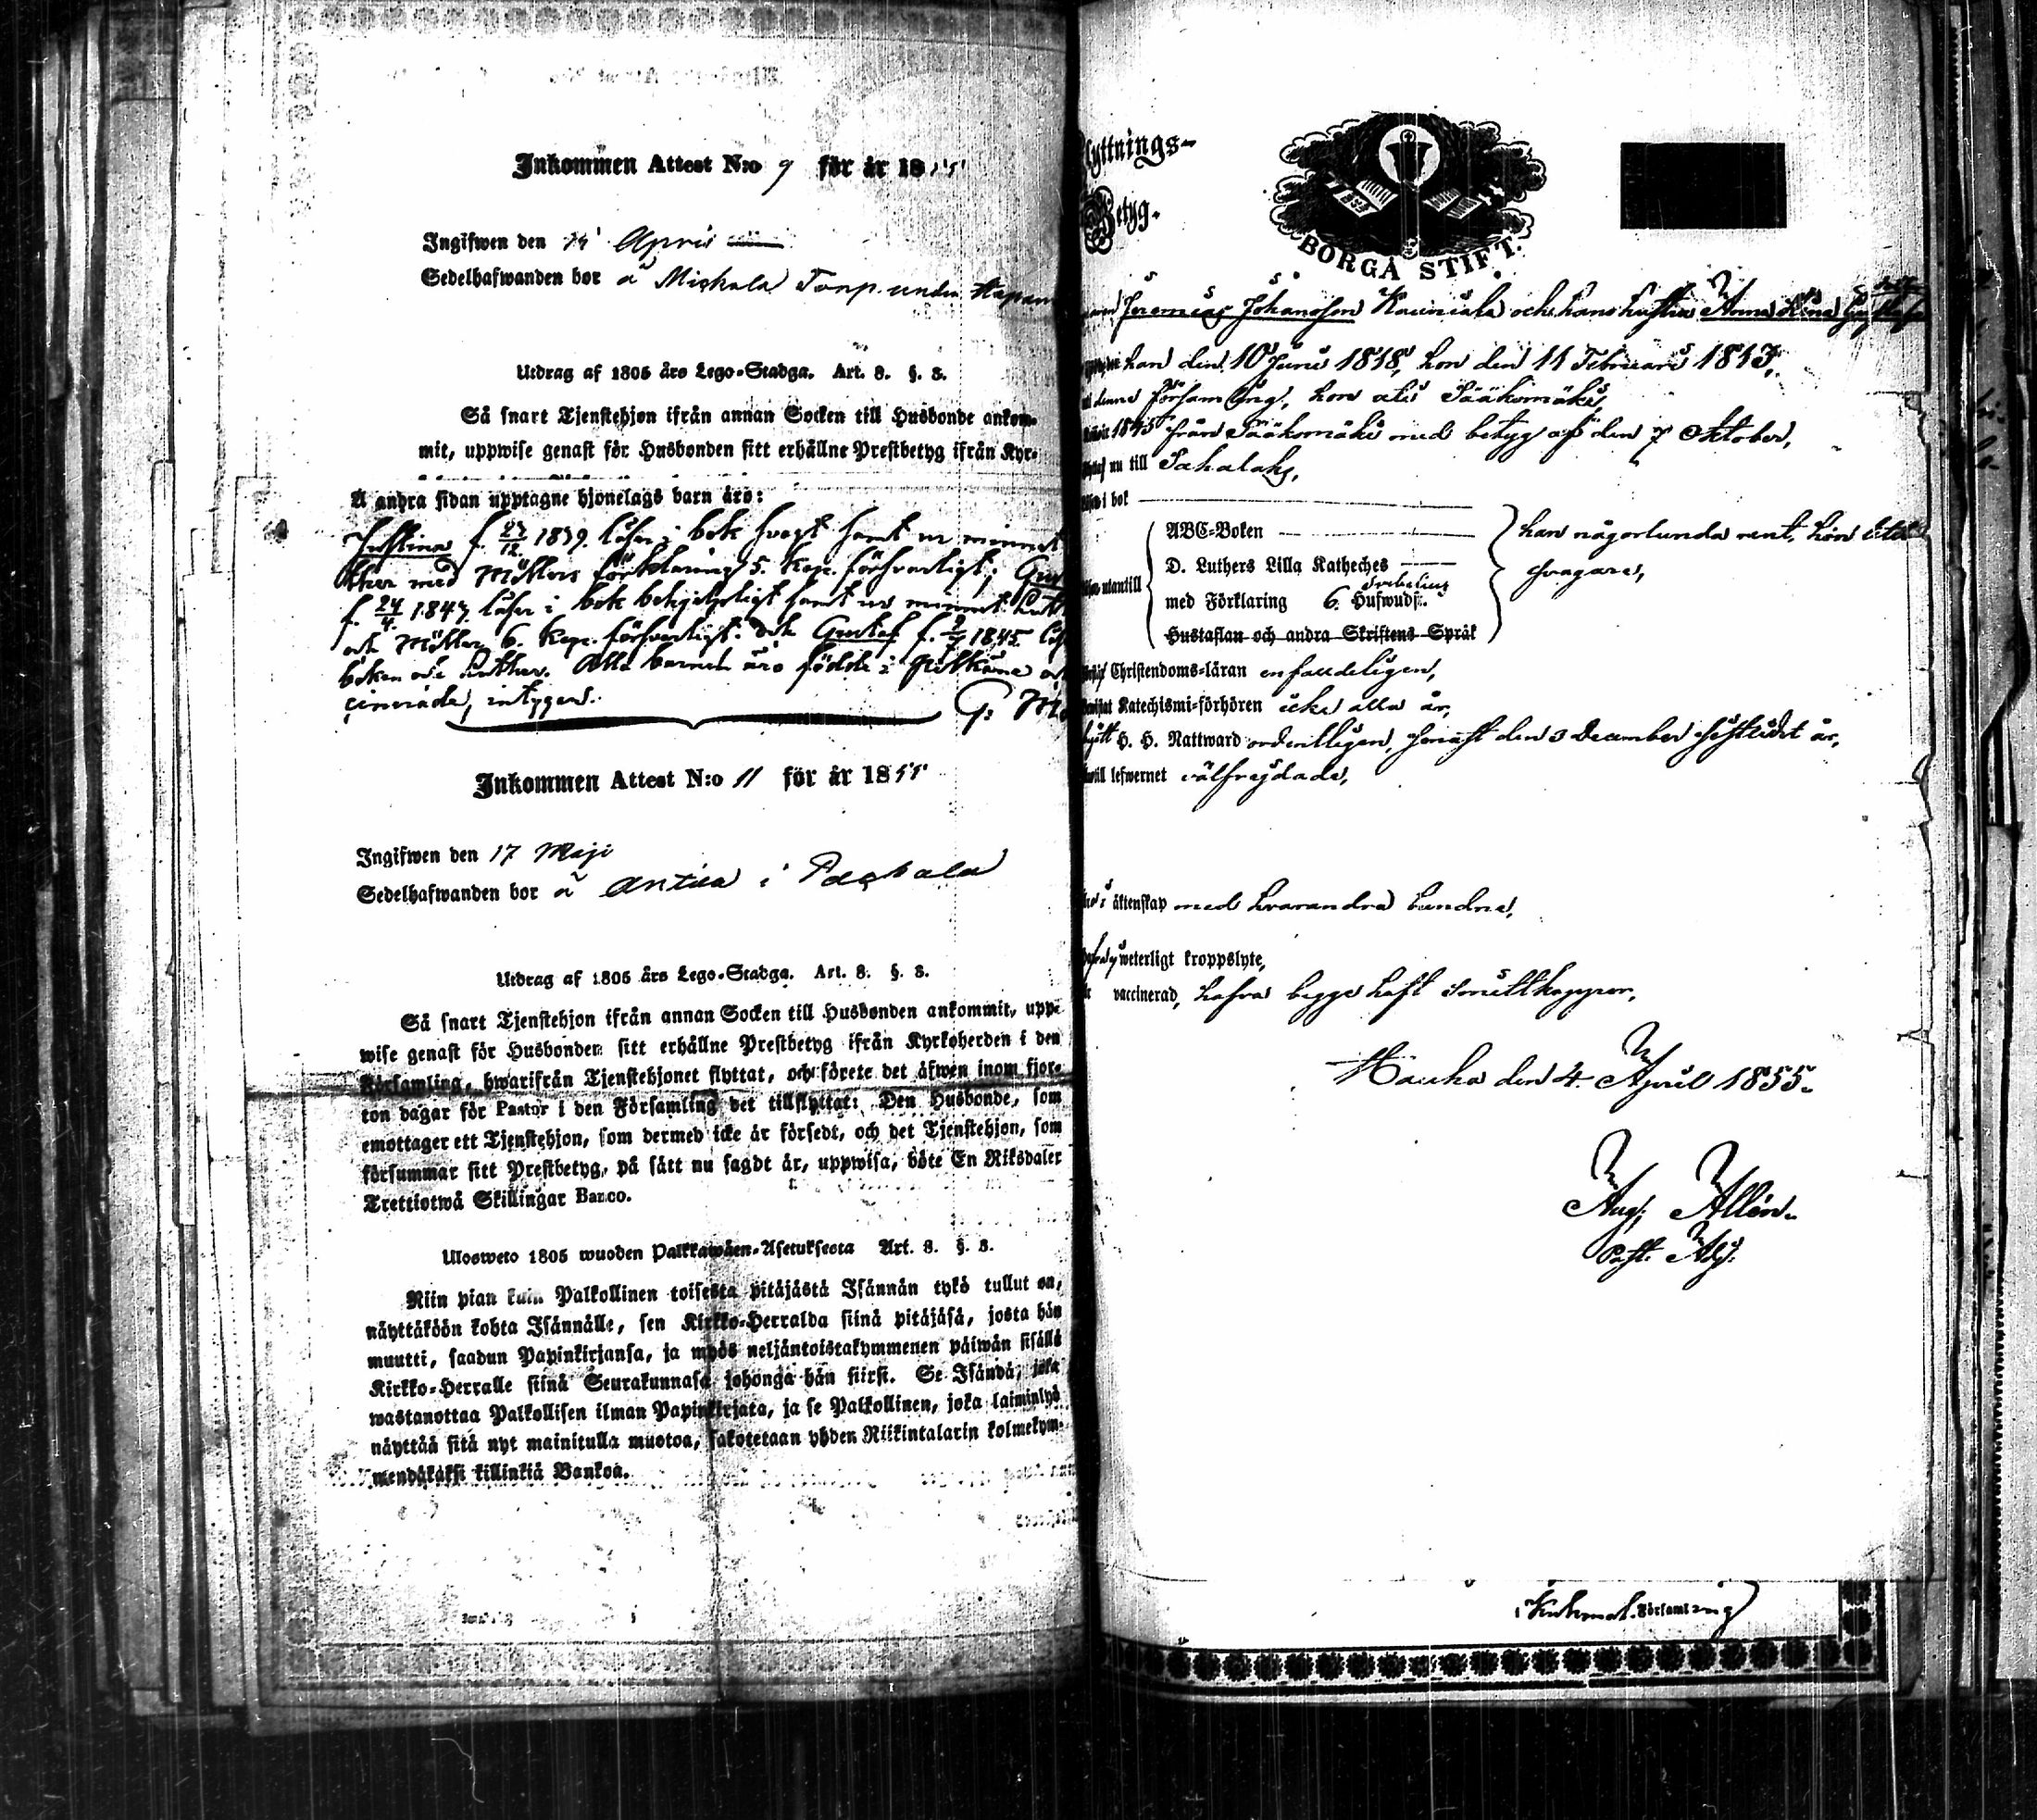 Inkommen Attest N:o 9 för år 1855
Ingifwen den 14 April
Sedelhafwanden bor å Mickala Torp under
Utdrag af 1805 års Lego-Stadga. Art. 8. §. 8.
Så snart Tjenstehjon ifrån annan Socken till Husbonde ankom-
mit, uppwise genast för Husbonden sitt erhållne Prestbetyg ifrån Kyr-
Å andra sidan upptagne hjonelags barn äro:
Justina f. 23/12 1839. läser i bok svagt samt ur minnet
ther med Möllers förklaring 5. Kap. försvarligt;
f. 24/4 1843. läser i bok behjelpligt samt ur minnet
och Möller 6. Kap. försvarligt. och Gustaf f. 1845
boken och Luther. Alla barnen äro födde i
cinerade, intygas.
G.
Inkommen Attest N:o 11 för år 1855
Ingifwen den 17 Maji
Sedelhafwanden bor å Antila i
Utdrag af 1805 års Lego-Stadga. Art. 8. §. 8.
Så snart Tjenstehjon ifrån annan Socken till Husbonden ankommit, upp-
wise genast för Husbonden sitt erhållne Prestbetyg ifrån Kyrkoherden i den
Församling, hwarifrån Tjenstehjonet flyttat, och förete det äfwen inom fjor-
ton dagar för Pastor i den Församling det tillflyttat: Den Husbonde, som
emottager ett Tjenstehjon, som dermed icke är försedt, och det Tjenstehjon, som
försummar sitt Prestbetyg, på sätt nu sagdt är, uppwisa, böte En Riksdaler
Trettiotwå Skillingar Banco.
Ulosweto 1805 wuoden Palkkawäen-Asetuksesta Art. 8. §. 8.
Niin pian kuin Palkollinen toisesta pitäjästä Isännän tykö tullut on,
näyttäköön kohta Isännälle, sen Kirkko-Herralda siinä pitäjäsä, josta hän
muutti, saadun Papinkirjansa, ja myös neljäntoistakymmenen päiwän sisällä
Kirkko-Herralle siinä Seurakunnasa johonga hän siirsi. Se Isändä, joka
wastanottaa Palkollisen ilman Papinkirjata, ja se Palkollinen, joka laiminlyö
näyttää sitä nyt mainitulla muotoa, sakotetaan yhden Riikintalarin kolmekym-
mendäkaksi killinkiä Bankoa.
Flyttnings-
Betyg.
BORGÅ STIFT.
Jeremias Johansson Kauniala och hans hustru Anna Lena
han den 10 Juni 1818, hon den 11 Februari 1813,
denna Församling, hon uti Sääksmäki,
1845 från Sääksmäki med betyg af den 7 Oktober,
nu till Sahalaks,
i bok
ABC-Boken
D. Luthers Lilla Katheches
med Förklaring 6. Hufwudst. Svebelius
Hustaflan och andra Skriftens Språk
utantill
han någorlunda rent, hon
svagare,
Christendoms-läran enfaldeligen,
Katechismi-förhören icke alla år,
H. H. Nattward ordentligen, senast den 3 December sistlidet år,
till lefwernet välfrejdade,
äktenskap med hvarandra bundne,
weterligt kroppslyte,
vaccinerad, hafva begge haft smittkoppor,
Hauho den 4 April 1855.
Aug. Allén.
Past. Adj.
i Kuhmal. Församling